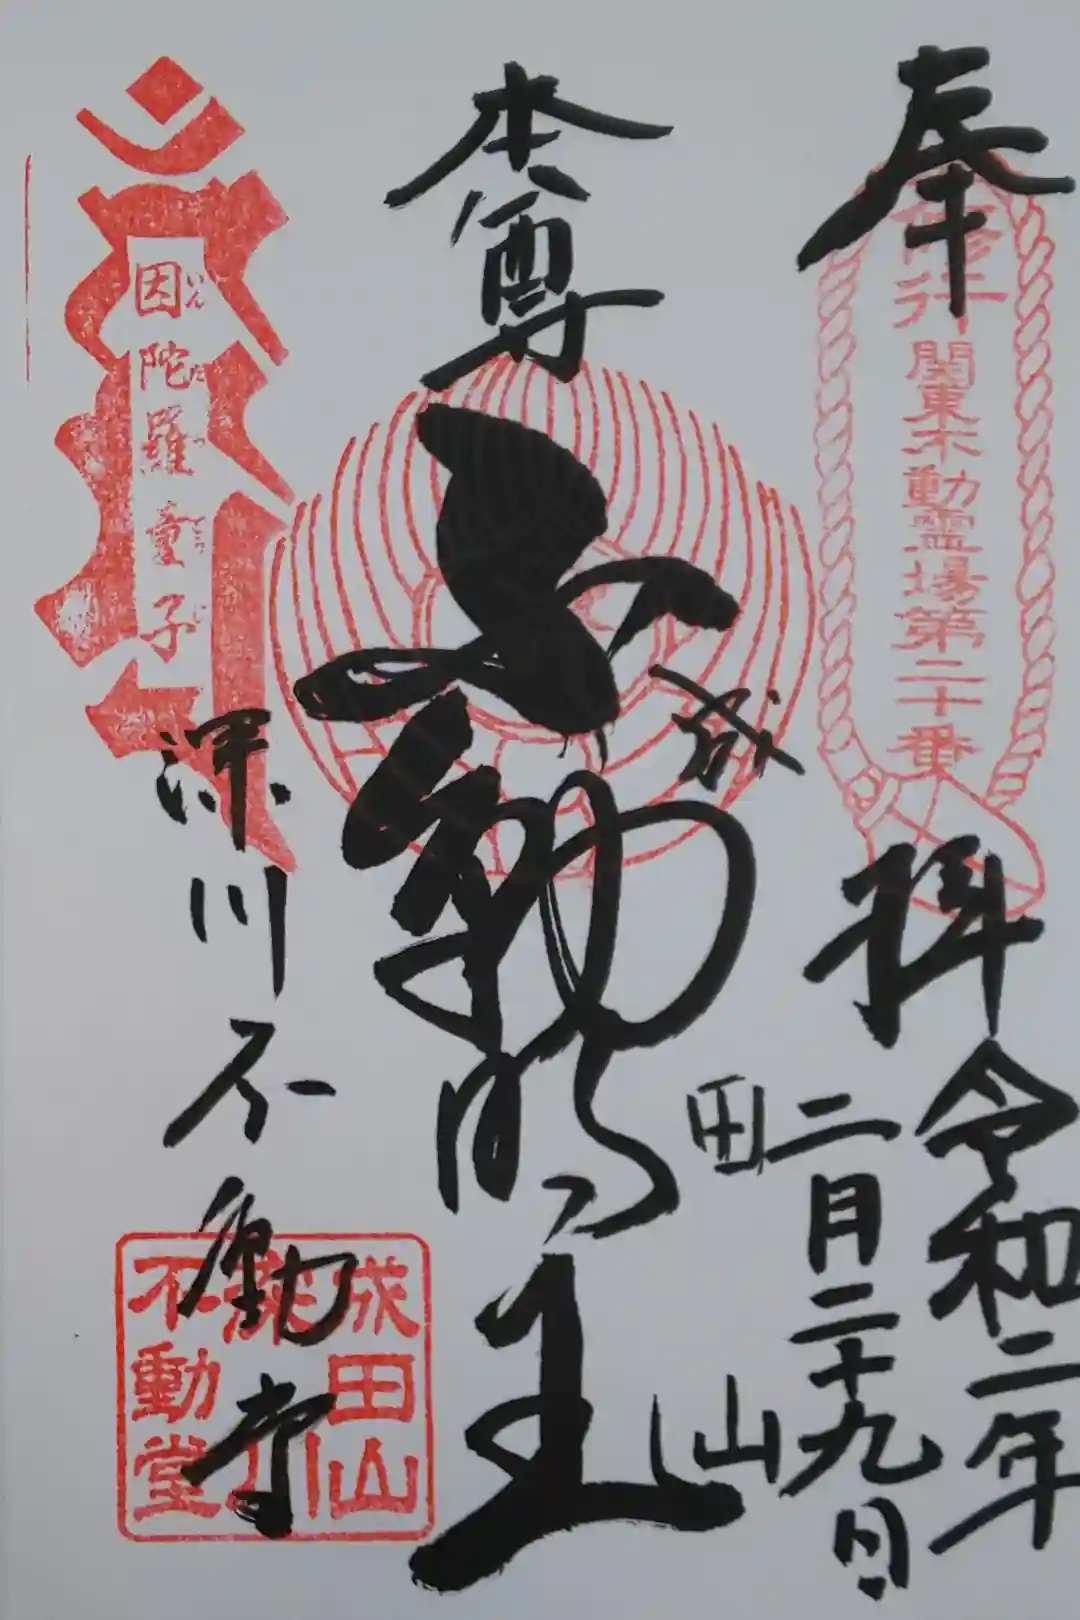 奉拝
修行
関東不動霊場第二十番
令和二年
二月二十九日
本尊
不動明王
成田山
深川不動堂
因陀羅童子
いんだらどうじ
成田山
深川
不動堂